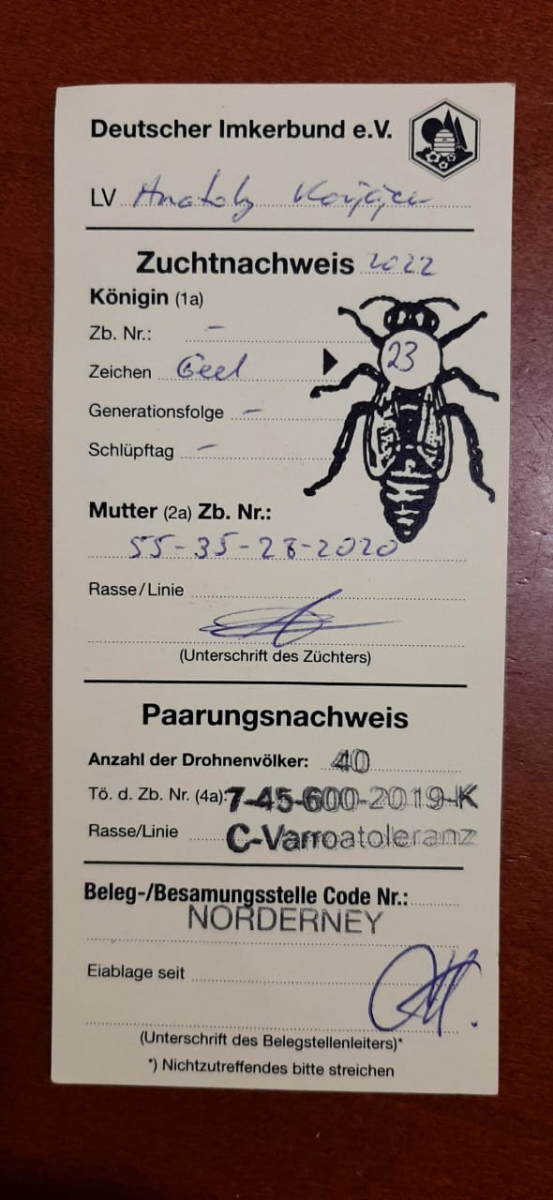 Deutscher Imkerbund e.V.
LV Anatoly
Zuchtnachweis 2022
Königin (1a)
Zb. Nr.: –
Zeichen Geel
23
Generationsfolge –
Schlüpftag –
Mutter (2a) Zb. Nr.:
55-35-28-2020
Rasse/Linie
(Unterschrift des Züchters)
Paarungsnachweis
Anzahl der Drohnenvölker: 40
Tö. d. Zb. Nr. (4a): 7-45-600-2019-K
Rasse/Linie C-Varroatoleranz
Beleg-/Besamungsstelle Code Nr.:
NORDERNEY
Eiablage seit
(Unterschrift des Belegstellenleiters)*
*) Nichtzutreffendes bitte streichen